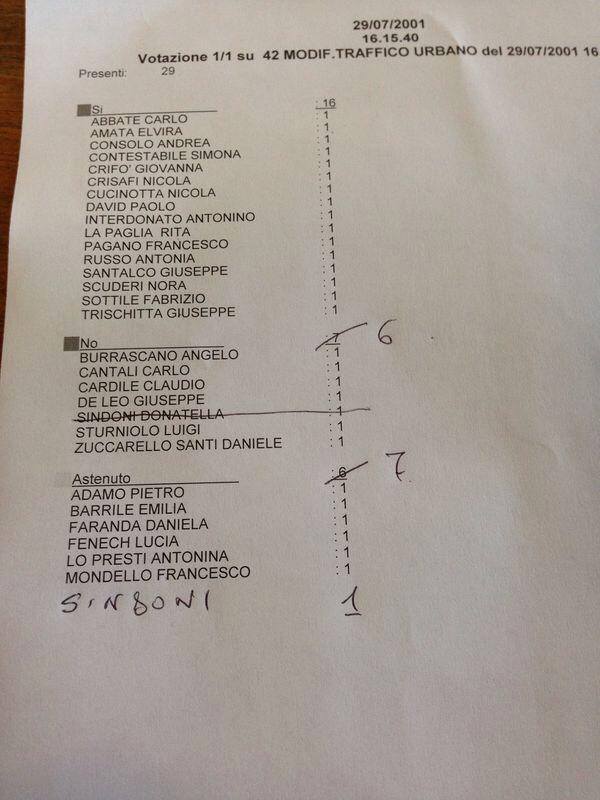 29/07/2001
16.15.40
Votazione 1/1 su 42 MODIF.TRAFFICO URBANO del 29/07/2001 16
Presenti: 29
Si : 16
ABBATE CARLO : 1
AMATA ELVIRA : 1
CONSOLO ANDREA : 1
CONTESTABILE SIMONA : 1
CRIFO' GIOVANNA : 1
CRISAFI NICOLA : 1
CUCINOTTA NICOLA : 1
DAVID PAOLO : 1
INTERDONATO ANTONINO : 1
LA PAGLIA RITA : 1
PAGANO FRANCESCO : 1
RUSSO ANTONIA : 1
SANTALCO GIUSEPPE : 1
SCUDERI NORA : 1
SOTTILE FABRIZIO : 1
TRISCHITTA GIUSEPPE : 1
No : 7 6
BURRASCANO ANGELO : 1
CANTALI CARLO : 1
CARDILE CLAUDIO : 1
DE LEO GIUSEPPE : 1
SINDONI DONATELLA : 1
STURNIOLO LUIGI : 1
ZUCCARELLO SANTI DANIELE : 1
Astenuto : 6 7
ADAMO PIETRO : 1
BARRILE EMILIA : 1
FARANDA DANIELA : 1
FENECH LUCIA : 1
LO PRESTI ANTONINA : 1
MONDELLO FRANCESCO : 1
SINDONI 1